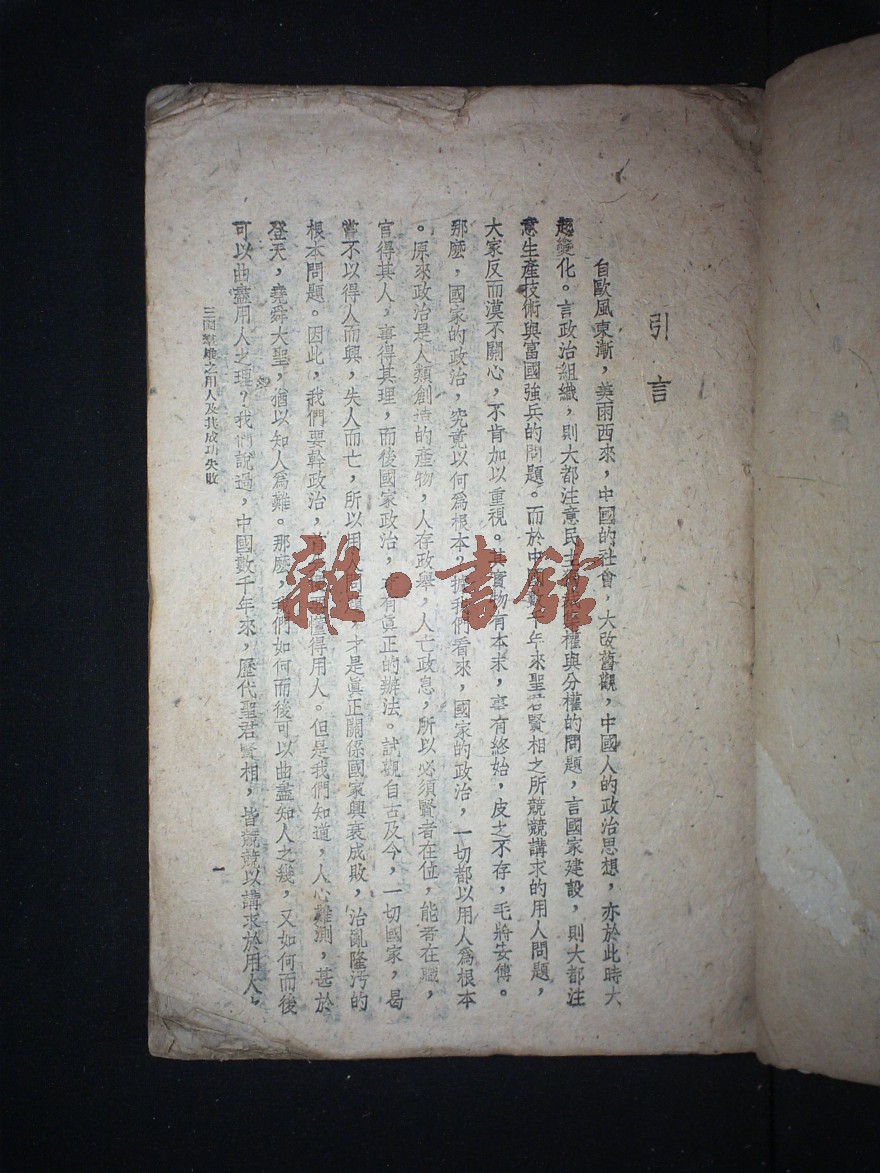 引言
自歐風東漸，美雨西來，中國的社會，大改舊觀，中國人的政治思想，亦於此時大
起變化。言政治組織，則大都注意民主權與分權的問題，言國家建設，則大都注
意生產技術與富國強兵的問題。而於中國千年來聖君賢相之所競競講求的用人問題，
大家反而漠不關心，不肯加以重視。其實物有本末，事有終始，皮之不存，毛將安傅。
那麽，國家的政治，究竟以何爲根本？據我們看來，國家的政治，一切都以用人爲根本
。原來政治是人類創造的產物，人存政舉，人亡政息，所以必須賢者在位，能者在職，
官得其人，事得其理，而後國家政治，有眞正的辦法。試觀自古及今，一切國家，曷
嘗不以得人而興，失人而亡，所以用人問題，才是眞正關係國家興衰成敗，治亂隆污的
根本問題。因此，我們要幹政治，要懂得用人。但是我們知道，人心難測，甚於
登天，堯舜大聖，猶以知人爲難。那麽，我們如何而後可以曲盡知人之幾，又如何而後
可以曲盡用人之理？我們說過，中國數千年來，歷代聖君賢相，皆競競以講求於用人，
三國羣雄之用人及其成功失敗
一
雜·書館